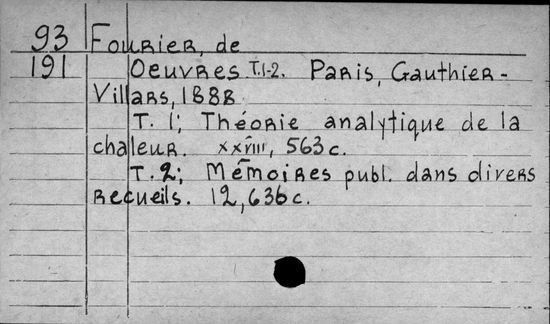 93 Fourier, de
191 Oeuvres T.1-2. Paris, Gauthier-
Villars, 1888
T. 1; Théorie analytique de la
chaleur. xxviii, 563 c.
T. 2; Mémoires publ. dans divers
recueils. 12, 636 c.